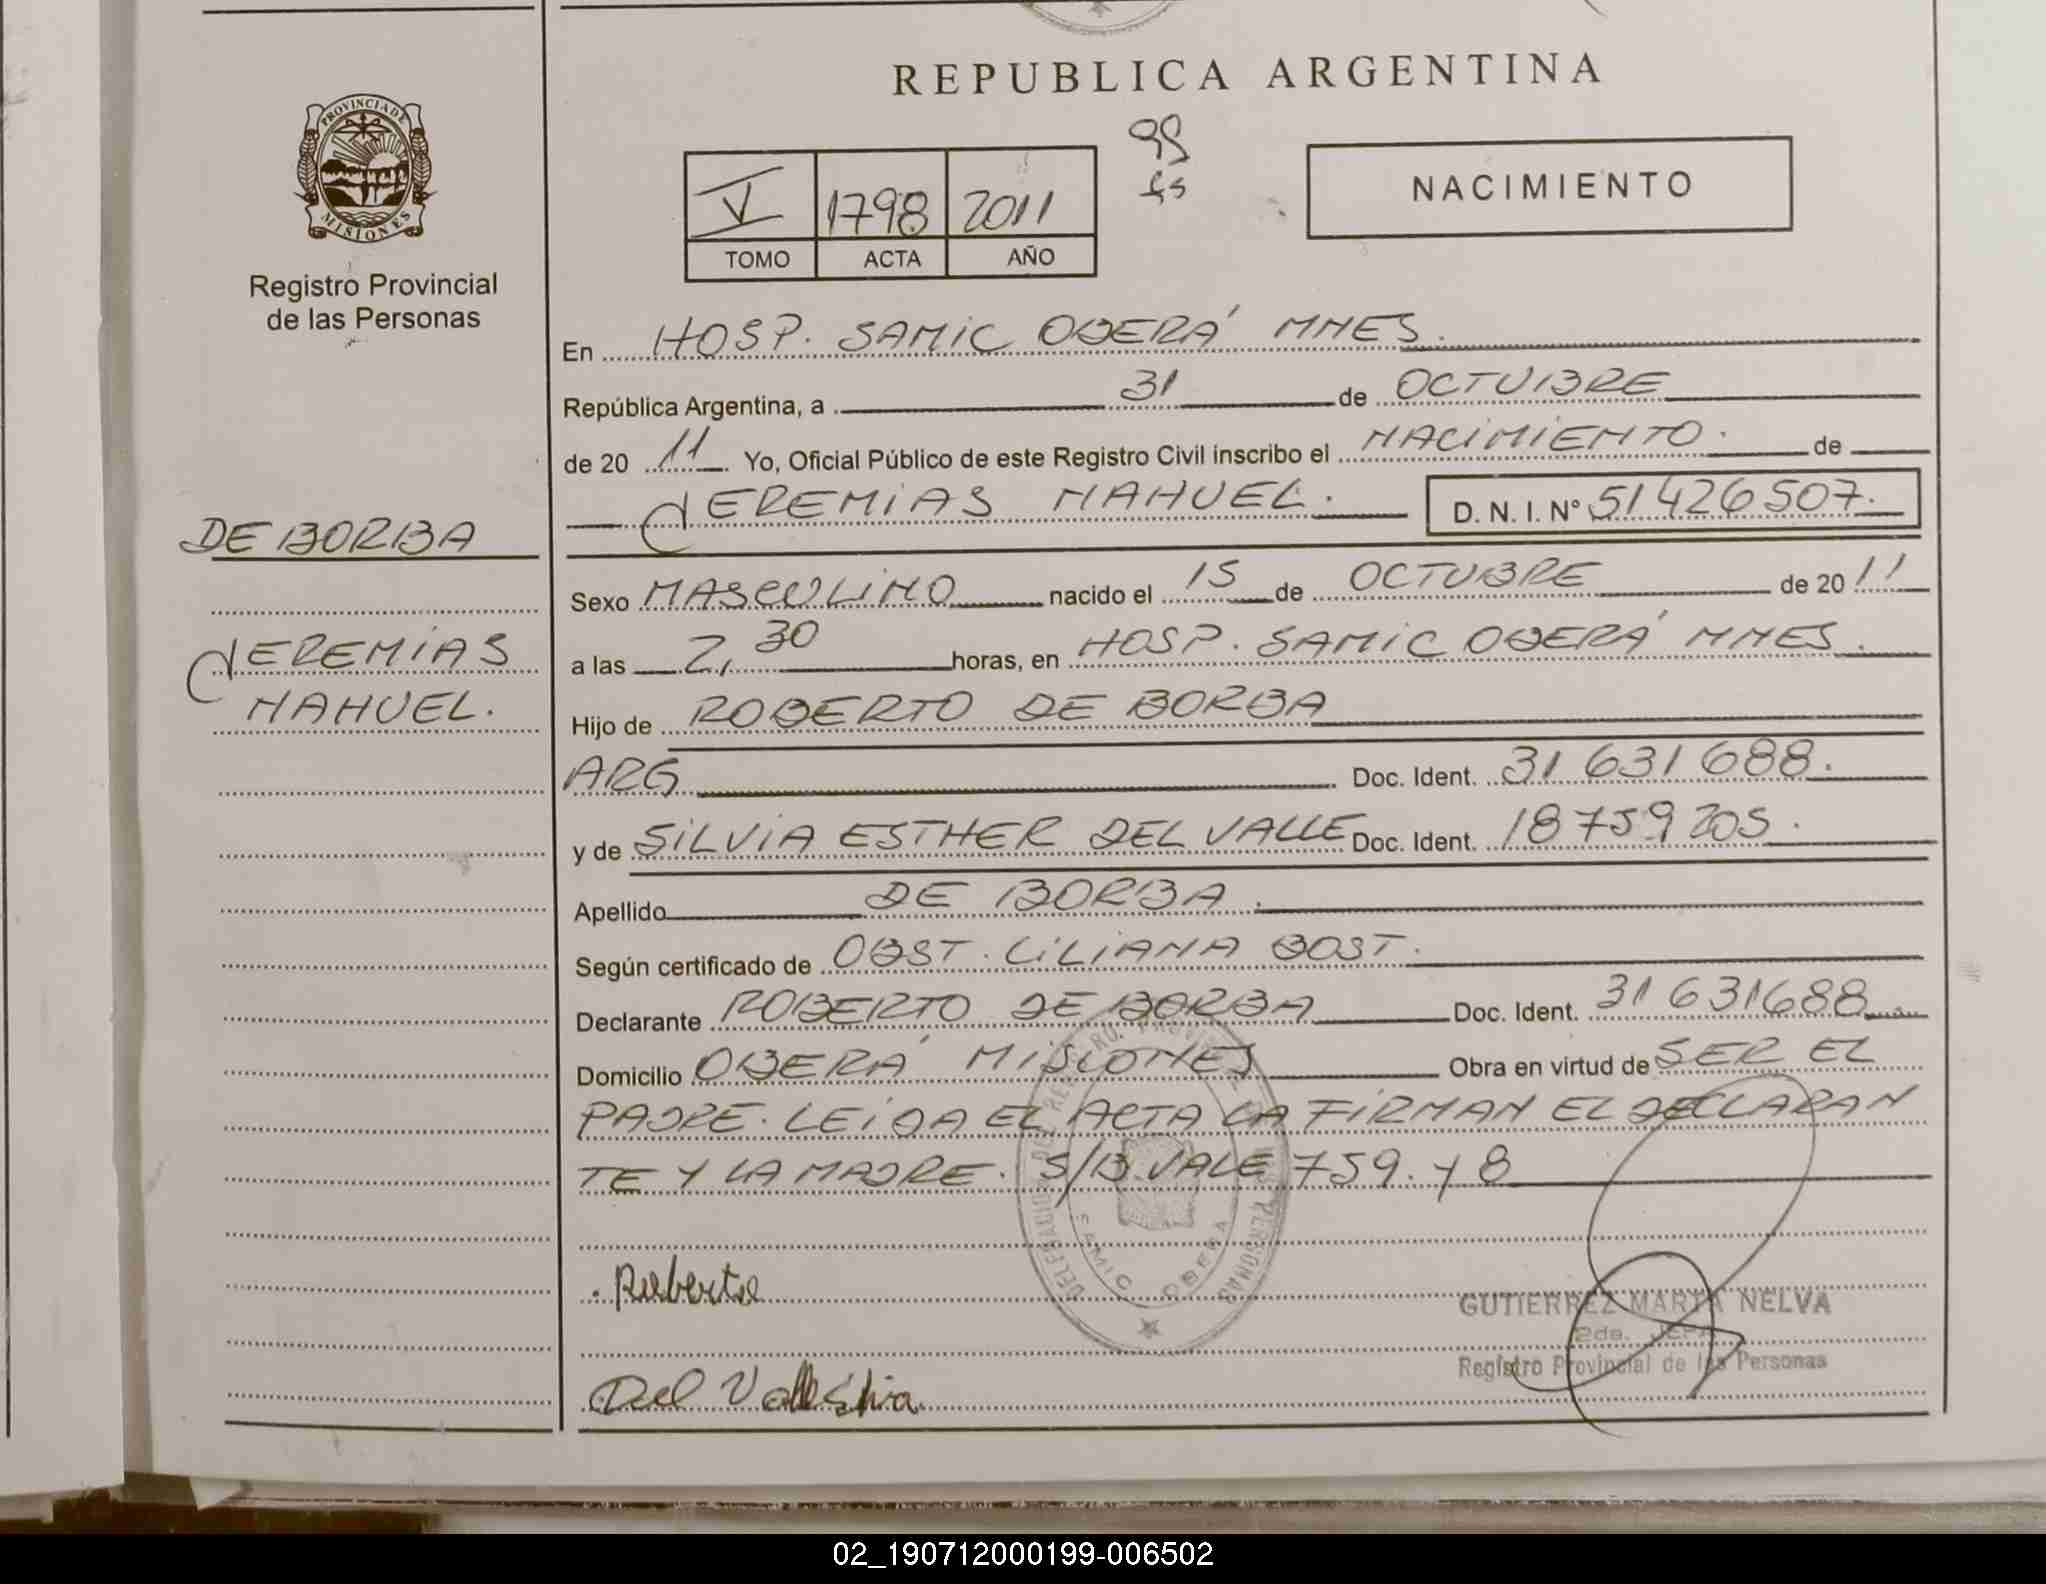 REPUBLICA ARGENTINA
PROVINCIA DE
MISIONES
Registro Provincial
de las Personas
V 1798 2011
TOMO ACTA AÑO
99
fs
NACIMIENTO
En HOSP. SAMIC OBERÁ MNES.
República Argentina, a 31 de OCTUBRE
de 2011 Yo, Oficial Público de este Registro Civil inscribo el NACIMIENTO. de
JEREMIAS NAHUEL. D. N. I. Nº 51426507.
DE BORBA
JEREMIAS
NAHUEL.
Sexo MASCULINO nacido el 15 de OCTUBRE de 2011
a las 2,30 horas, en HOSP. SAMIC OBERÁ MNES.
Hijo de ROBERTO DE BORBA
ARG Doc. Ident. 31 631 688.
y de SILVIA ESTHER DEL VALLE Doc. Ident. 18 759 205.
Apellido DE BORBA.
Según certificado de OBST. LILIANA BOST.
Declarante ROBERTO DE BORBA Doc. Ident. 31 631688
Domicilio OBERÁ MISIONES Obra en virtud de SER EL
PADRE. LEIDA EL ACTA LA FIRMAN EL DECLARAN
TE Y LA MADRE. S/B. VALE 759. y 8
Roberto
Del Valle Silvia
SAMIC OBERA
GUTIERREZ MARTA NELVA
2da. JEFA
Registro Provincial de las Personas
02_190712000199-006502